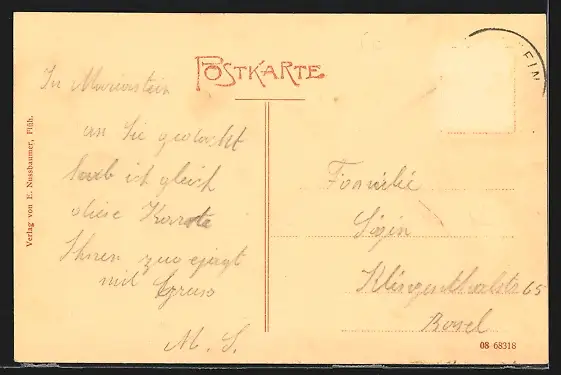 POSTKARTE
In Mariastein
an Sie gedacht
hab ich gleich
diese Karte
Ihnen zugejagt
mit Gruss
M. S.
Familie
Klingenthalstr 65
Basel
EIN
Verlag von E. Nussbaumer, Flüh.
08 68318